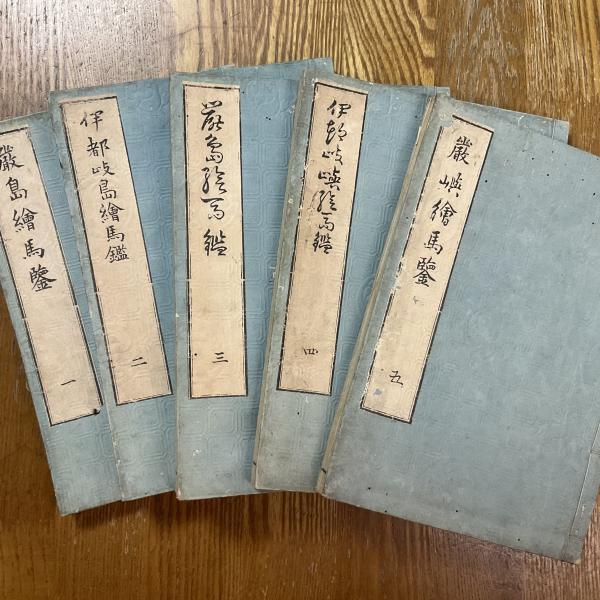 嚴島繪馬鑒
一
伊都岐島繪馬鑑
二
嚴島繪馬鑑
三
伊都岐嶼繪馬鑑
四
巖嶼繪馬鑒
五